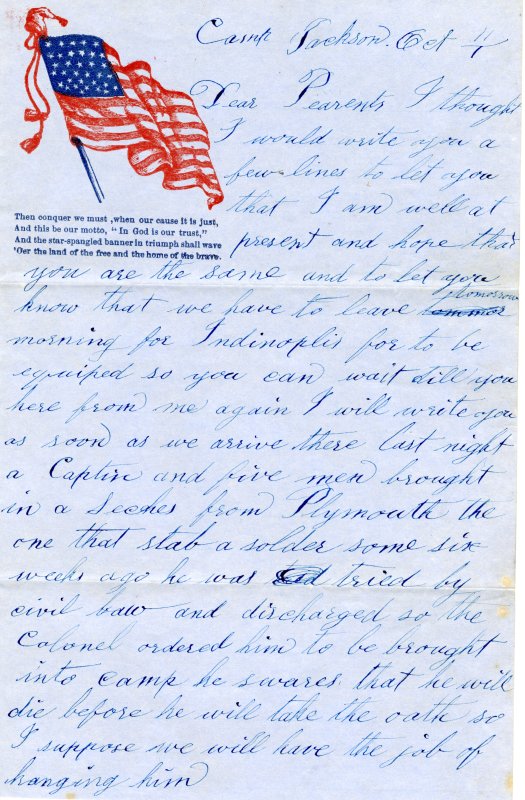 Camp Jackson. Oct 11
Dear Pearents I thought
I would write you a
few lines to let you
that I am well at
present and hope that
Then conquer we must, when our cause it is just,
And this be our motto, "In God is our trust,"
And the star-spangled banner in triumph shall wave
'Oer the land of the free and the home of the brave.
you are the same and to let you
know that we have to leave tomorrow
morning for Indinoplis for to be
equiped so you can wait till you
here from me again I will write you
as soon as we arrive there last night
a Captin and five men brought
in a Seches from Plymouth the
one that stab a solder some six
weeks ago he was tried by
civil law and discharged so the
Colonel ordered him to be brought
into camp he swares that he will
die before he will take the oath so
I suppose we will have the job of
hanging him